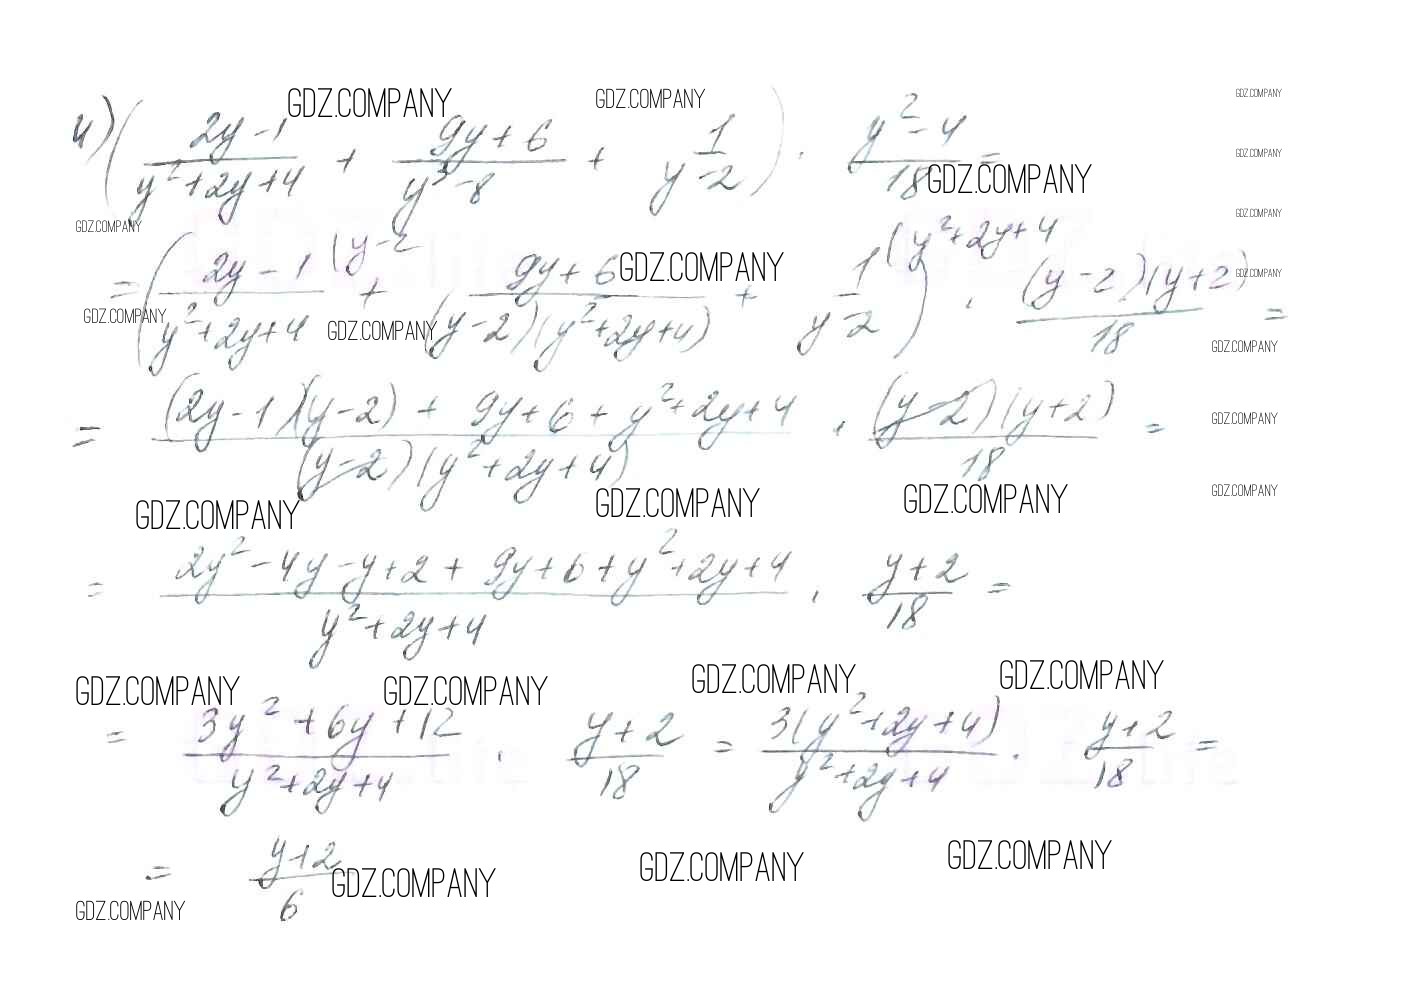 GDZ.COMPANY GDZ.COMPANY GDZ.COMPANY
4) ( (2y-1)/(y²+2y+4) + (9y+6)/(y³-8) + 1/(y-2) ) · (y²-4)/18 =
GDZ.COMPANY GDZ.COMPANY
GDZ.COMPANY GDZ.COMPANY
= ( (2y-1)/(y²+2y+4) (y-2 + (9y+6)/((y-2)(y²+2y+4)) + 1/(y-2) (y²+2y+4 ) · ((y-2)(y+2))/18 =
GDZ.COMPANY GDZ.COMPANY
GDZ.COMPANY GDZ.COMPANY GDZ.COMPANY
= ((2y-1)(y-2) + 9y+6 + y²+2y+4)/((y-2)(y²+2y+4)) · ((y-2)(y+2))/18 =
GDZ.COMPANY
GDZ.COMPANY GDZ.COMPANY GDZ.COMPANY GDZ.COMPANY
= (2y²-4y-y+2+9y+6+y²+2y+4)/(y²+2y+4) · (y+2)/18 =
GDZ.COMPANY GDZ.COMPANY GDZ.COMPANY GDZ.COMPANY
= (3y²+6y+12)/(y²+2y+4) · (y+2)/18 = (3(y²+2y+4))/(y²+2y+4) · (y+2)/18 =
= (y+2)/6
GDZ.COMPANY GDZ.COMPANY GDZ.COMPANY
GDZ.COMPANY